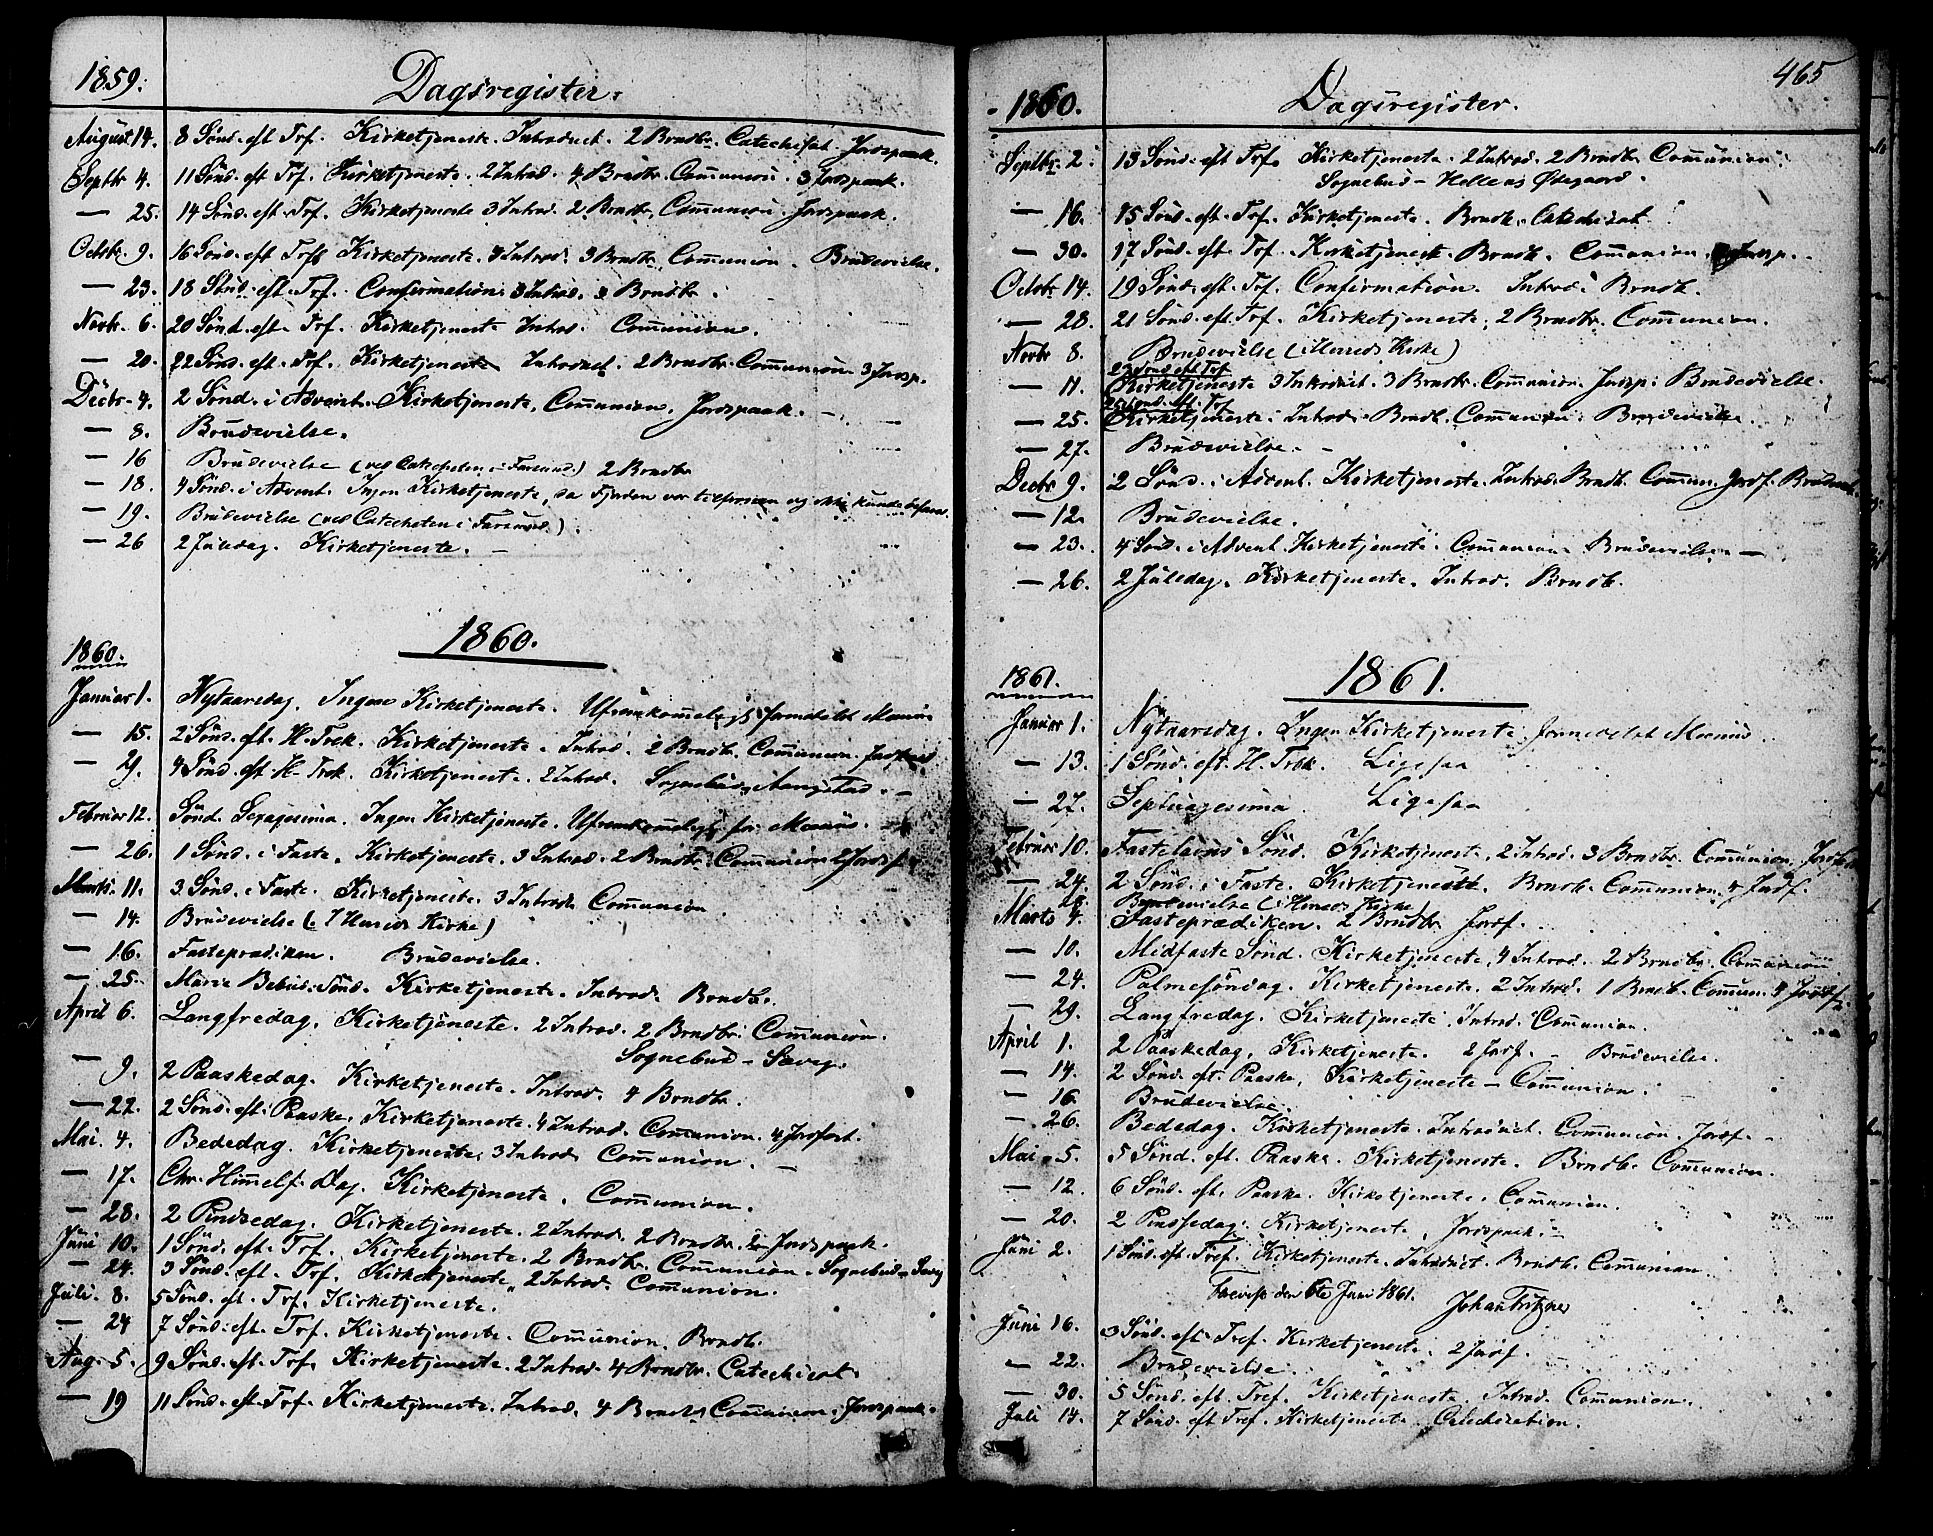 1859.
Dagsregister.
August 14. 8 Sönd. eft. Tref. Kirketjeneste. Introduct. 2 Brndb. Catechisat. Jordspaak.
Septbr 4. 11 Sönd. eft. Tref. Kirketjeneste. 2 Introd. 4 Brndb. Communion. 3 Jordspaak.
— 25. 14 Sönd. eft. Tref. Kirketjeneste 3 Introd. 2 Brndb. Communion. Jordspaak.
Octobr. 9. 16 Sönd. eft Tref. Kirketjeneste. 4 Introd. 3 Brndb. Communion. Brudevielse.
— 23. 18 Sönd. eft. Tref. Confirmation. 3 Introd. Brndb.
Novbr. 6. 20 Sönd. eft. Tref. Kirketjeneste Introd. Communion.
— 20. 22 Sönd. eft. Tref. Kirketjeneste Introduct. 2 Brndb. Communion. 3 Jordsp.
Decbr. 4. 2 Sönd. i Advent. Kirketjeneste, Communion, Jordspaak.
— 8. Brudevielse.
— 16 Brudevielse (ved i Farsund.) 2 Brndb.
— 18. 4 Sönd. i Advent. Ingen Kirketjeneste, da Fjorden var tilfrosen og ikke kunde befares.
— 19. Brudevielse (ved Catecheten i Farsund.)
— 26 2 Juledag. Kirketjeneste.
1860.
1860.
Januar 1. Nytaarsdag. Ingen Kirketjeneste. Ufremkommeligt formedelst
— 15. 2 Sönd. eft. H. Trek. Kirketjeneste. Introd. 2 Brndb. Communion.
— 29. 4 Sönd. eft. H. Trek. Kirketjeneste. 2 Introd. Sognebud
Februar 12. Sönd. Sexagesima. Ingen Kirketjeneste. Ufremkommeligt for
— 26. 1 Sönd. i Faste. Kirketjeneste. 3 Introd. 2 Brndb. Communion 2 Jordsf.
Marts. 11. 3 Sönd. i Faste. Kirketjeneste. 3 Introd. Communion
— 14. Brudevielse (i Herreds Kirke)
— 16. Fasteprædiken. Brudevielse.
— 25. Mariæ Bebud: Sönd. Kirketjeneste. Introd. Brndb.
April 6. Langfredag. Kirketjeneste. 2 Introd. 2 Brndb. Communion.
Sognebud –
— 9. 2 Paaskedag. Kirketjeneste. Introd. 4 Brndb.
— 22. 2 Sönd. eft. Paaske, Kirketjeneste. 4 Introd. Communion. 4 Jordfæst.
Mai. 4. Bededag. Kirketjeneste. 3 Introd. Communion.
— 17. Chr. Himmelf. Dag. Kirketjeneste. Communion.
— 28. 2 Pindsedag. Kirketjeneste. 2 Introd. 2 Brndb. 2 Jordspaak.
Juni 10. 1 Sönd. eft. Tref. Kirketjeneste. 2 Brndb. Communion. Sognebud
— 24. 3 Sönd. eft. Tref. Kirketjeneste 2 Introd. Communion.
Juli. 8. 5 Sönd. eft. Tref. Kirketjeneste.
— 24 7 Sönd. eft. Tref. Kirketjeneste. Communion. Brndb.
Aug. 5. 9 Sönd. eft. Tref. Kirketjeneste. 2 Introd. 4 Brndb. Catechisat.
— 19 11 Sönd. eft. Tref. Kirketjeneste. Introd. 4 Brndb. Communion. Jordspaak.
465
1860.
Dagsregister.
Septbr. 2. 13 Sönd. eft Tref. Kirketjeneste. 2 Introd. 2 Brndb. Communion.
Sognebud – Helleas Ødegaard.
— 16. 15 Sönd. eft. Tref. Kirketjeneste. Brndb. Catechisat.
— 30. 17 Sönd. eft. Tref. Kirketjeneste. Brndb. Communion. Jordsp.
Octobr 14. 19 Sönd. eft. Tref. Confirmation. Introd. Brndb.
— 28. 21 Sönd. eft. Tref. Kirketjeneste, 2 Brndb. Communion.
Novbr 8. Brudevielse (i Herreds Kirke)
23 Sönd. eft. Tref
— 11. Kirketjeneste 3 Introduct. 3 Brndb. Communion. Jordsp. Brudevielse.
25 Sönd. eft. Tref
— 25. Kirketjeneste. Introd. Brndb. Communion. Brudevielse.
— 27. Brudevielse.
Decbr 9. 2 Sönd. i Advent. Kirketjeneste. Introd. Brndb. Commun. Jordf.
— 12. Brudevielse.
— 23. 4 Sönd. i Advent. Kirketjeneste. Communion. Brudevielse. —
— 26. 2 Juledag. Kirketjeneste. Introd. Brndb.
1861.
1861.
Januar 1. Nytaarsdag. Ingen Kirketjeneste formedelst
— 13. 1 Sönd. eft. H. Trek. Ligesaa
— 27. Septuagesima Ligesaa
Februar 10. Fastelavns Sönd. Kirketjeneste. 2 Introd. 3 Brndb. Communion.
— 24. 2 Sönd. i Faste. Kirketjeneste. Brndb. Communion. 4 Jordf.
28. Brudevielse (i Herreds Kirke)
Marts 4. Fasteprædiken. 2 Brndb. Jordf.
— 10. Midfaste Sönd. Kirketjeneste, 4 Introd. 2 Brndb. Communion
— 24. Palmesöndag. Kirketjeneste. 2 Introd. 1 Brndb. Commun. 4 Jordf.
— 29. Langfredag. Kirketjeneste. Introd. Communion.
April 1. 2 Paaskedag. Kirketjeneste. 2 Jordf. – Brudevielse.
— 14. 2 Sönd. eft. Paaske, Kirketjeneste – Communion.
— 16. Brudevielse.
— 26. Bededag. Kirketjeneste. Introduct. Communion. Jordf.
Mai 5. 5 Sönd. eft. Paaske. Kirketjeneste. Brndb. Communion.
— 12. 6 Sönd. eft. Paaske. Kirketjeneste. Communion.
— 20. 2 Pindsedag. Kirketjeneste, Jordspaak.
Juni 2. 1 Sönd. eft. Tref. Kirketjeneste. Introduct. Brndb. Communion.
den 6te Juni 1861. Johan Fritzner
Juni 16. 3 Sönd. eft. Tref. Kirketjeneste. 2 Jordf.
— 22. Brudevielse.
— 30. 5 Sönd. eft. Tref. Kirketjeneste. Introd. Communion.
Juli 14. 7 Sönd. eft Tref. Kirketjeneste. Catechisation.